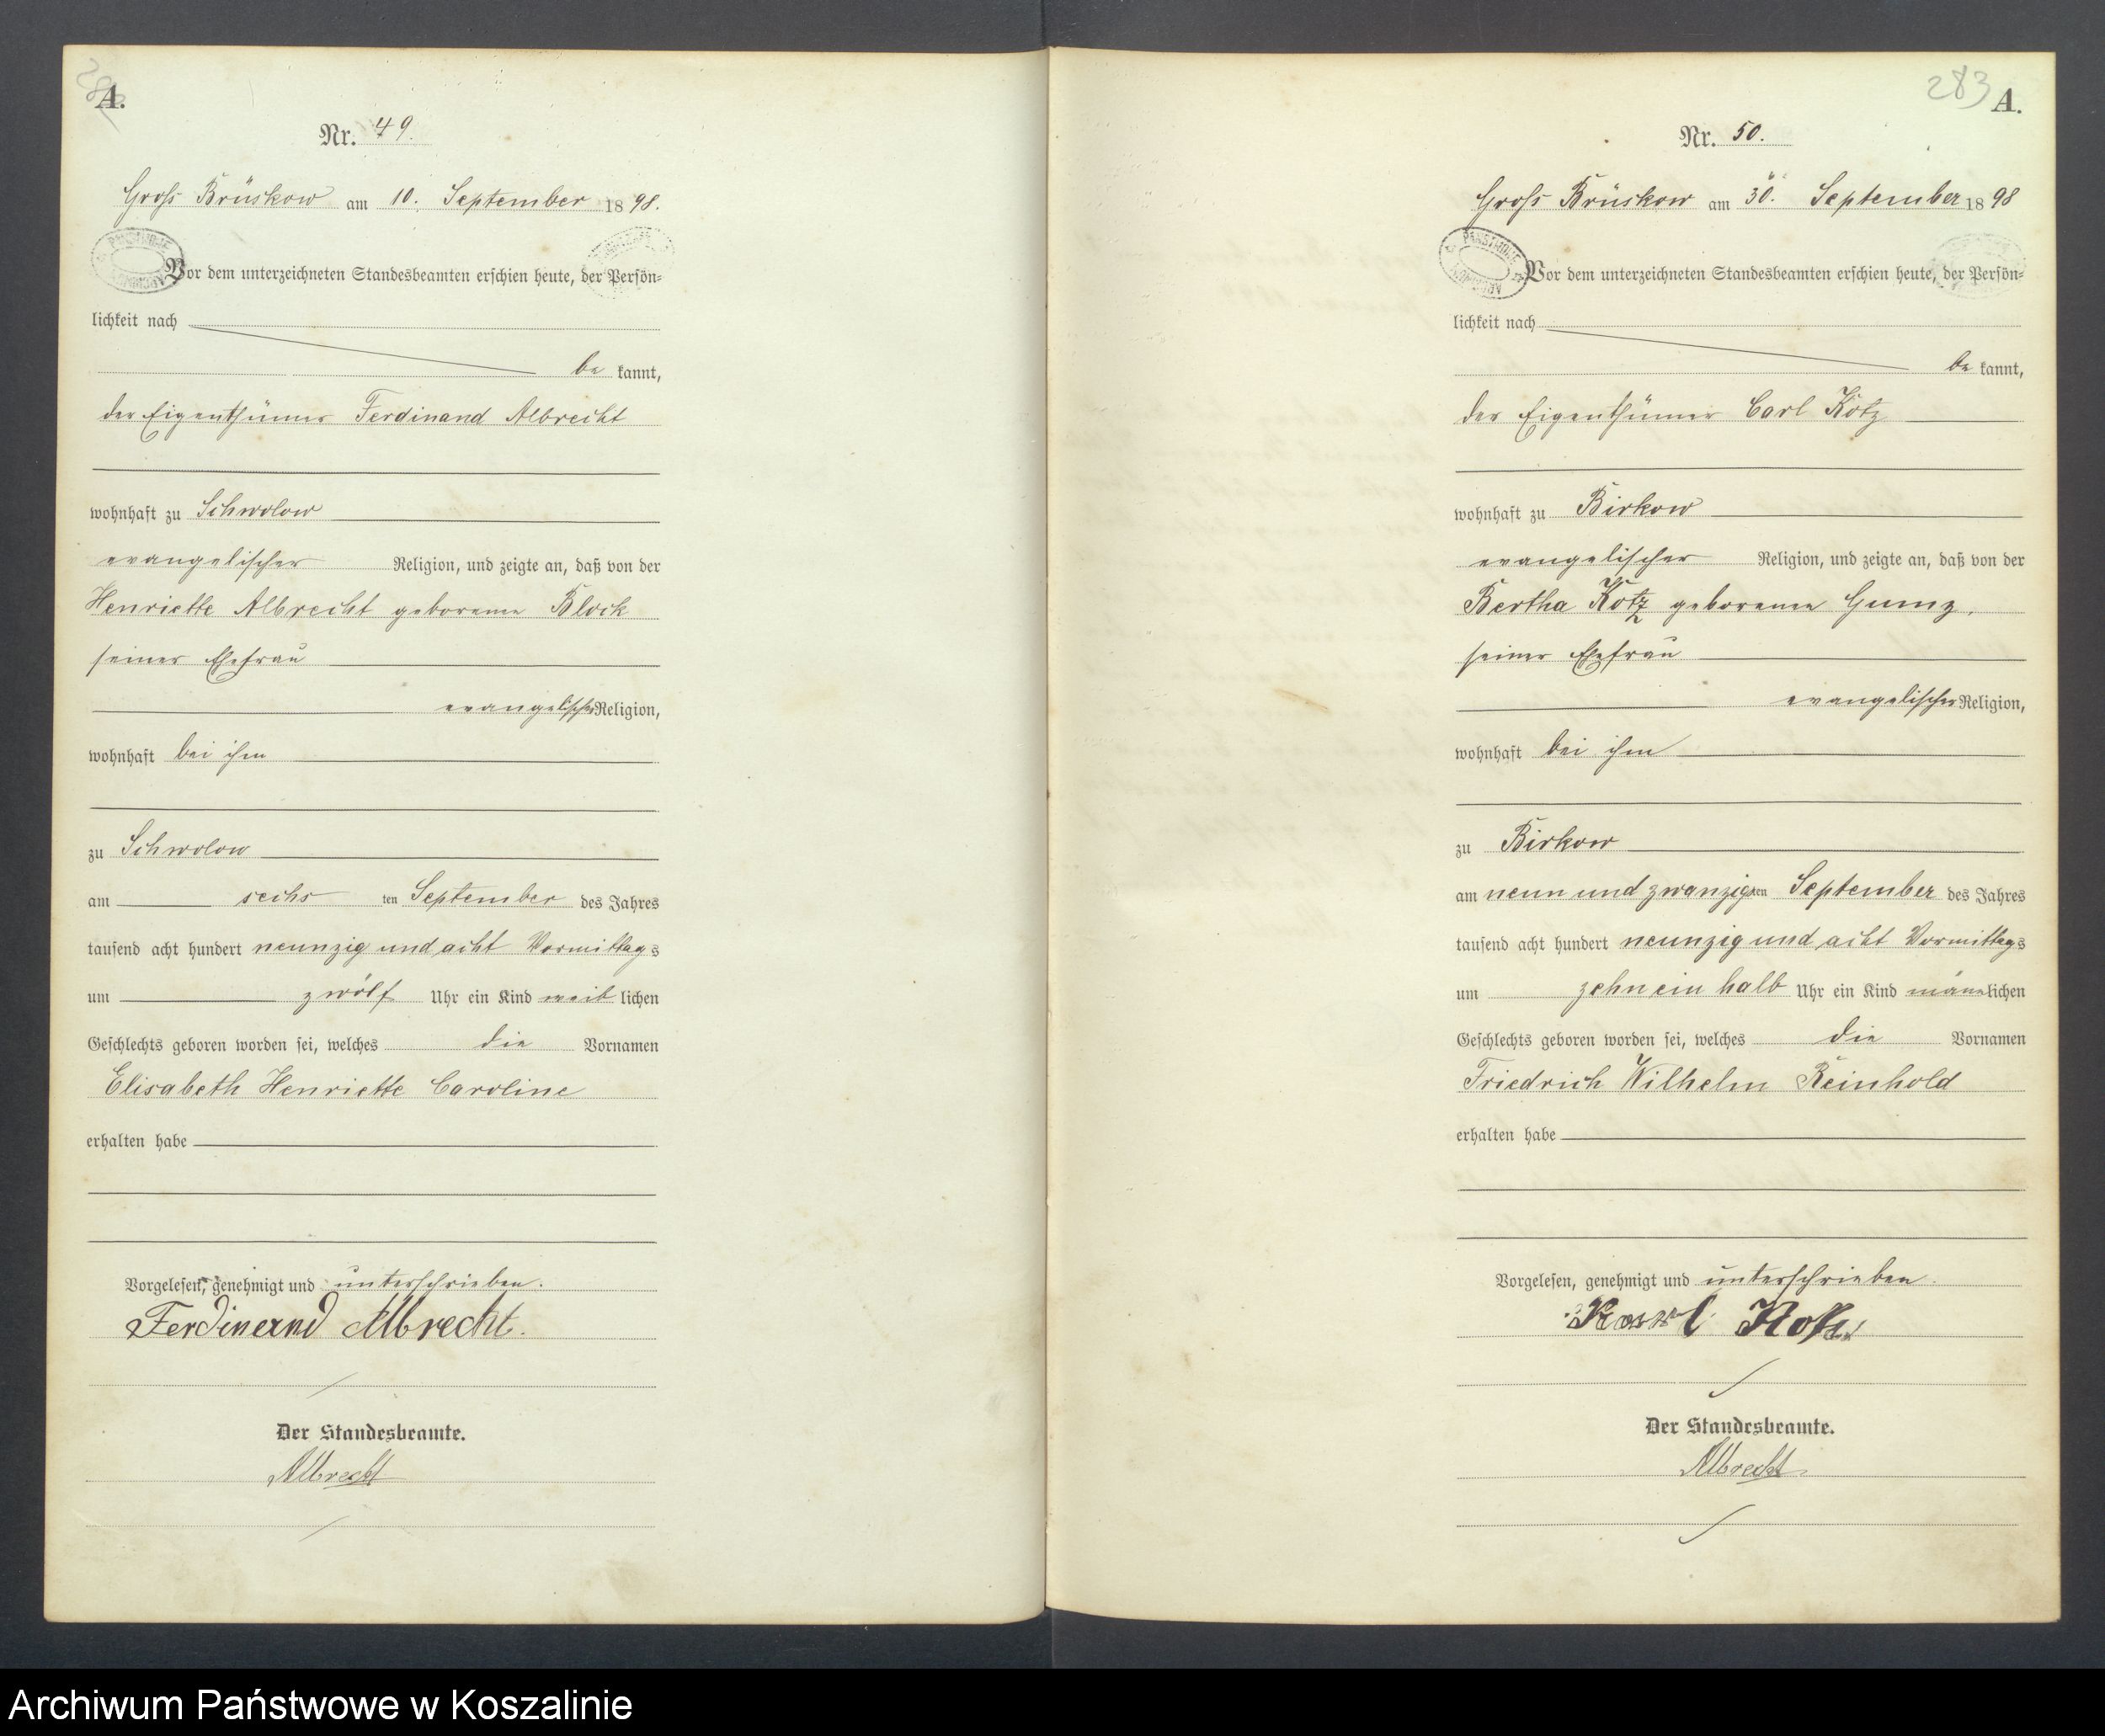 A.
Nr. 49.
Groß Brüskow am 10. September 1898.
Vor dem unterzeichneten Standesbeamten erschien heute, der Persön-
lichkeit nach
be kannt,
der Eigenthümer Ferdinand Albrecht
wohnhaft zu Schwolow
evangelischer Religion, und zeigte an, daß von der
Henriette Albrecht geborene Block
seiner Ehefrau
evangelischer Religion,
wohnhaft bei ihm
zu Schwolow
am sechs ten September des Jahres
tausend acht hundert neunzig und acht Vormittags
um zwölf Uhr ein Kind weiblichen
Geschlechts geboren worden sei, welches die Vornamen
Elisabeth Henriette Caroline
erhalten habe
Vorgelesen, genehmigt und unterschrieben.
Ferdinand Albrecht.
Der Standesbeamte.
Albrecht
283
A.
Nr. 50.
Groß Brüskow am 30. September 1898
Vor dem unterzeichneten Standesbeamten erschien heute, der Persön-
lichkeit nach
be kannt,
der Eigenthümer Carl Kotz
wohnhaft zu Birkow
evangelischer Religion, und zeigte an, daß von der
Bertha Kotz geborene Gumz,
seiner Ehefrau
evangelischer Religion,
wohnhaft bei ihm
zu Birkow
am neun und zwanzigsten September des Jahres
tausend acht hundert neunzig und acht Vormittags
um zehn ein halb Uhr ein Kind männlichen
Geschlechts geboren worden sei, welches die Vornamen
Friedrich Wilhelm Reinhold
erhalten habe
Vorgelesen, genehmigt und unterschrieben.
Karl Kotz
Der Standesbeamte.
Albrecht
Archiwum Państwowe w Koszalinie